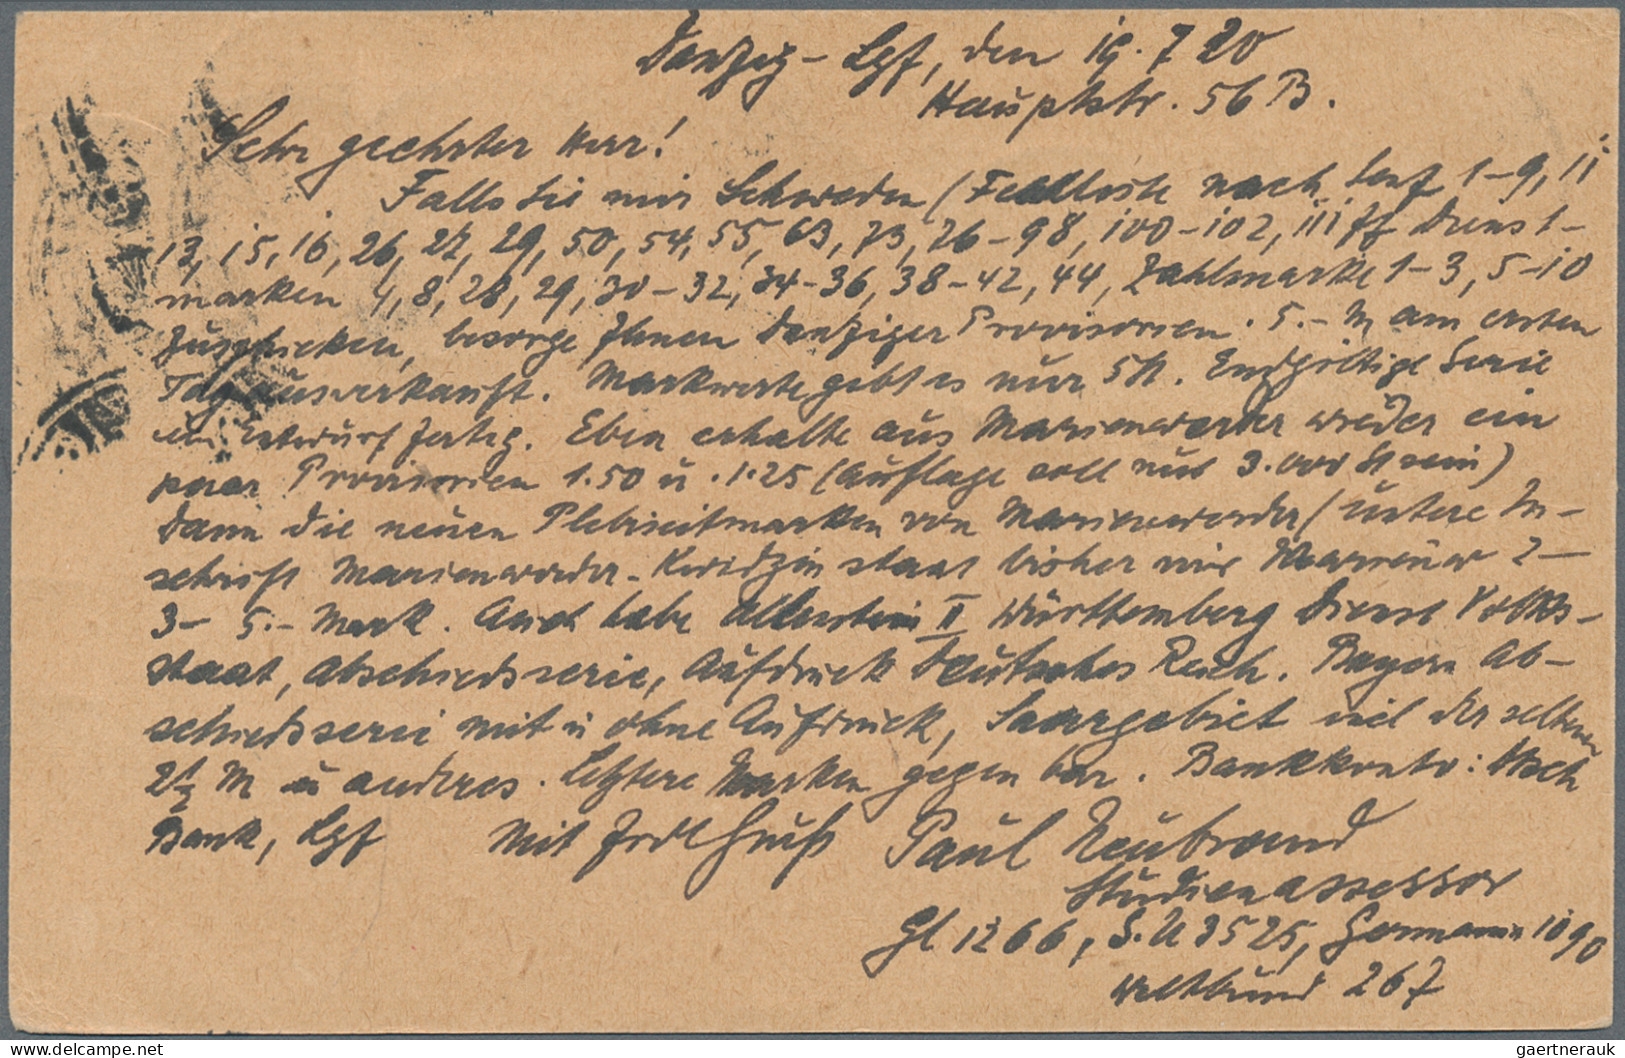 Danzig-Lgf, den 19.7 20
Hauptstr. 56 B.
Sehr geehrter Herr!
Falls Sie mir Schweden (Fehlliste nach Senf 1-9, 11
13, 15, 16, 26, 27, 29, 50, 54, 55, 63, 73, 76-98, 100-102, 111 ff Dienst-
marken 4, 8, 28, 29, 30-32, 34-36, 38-42, 44, Zahlmarke 1-3, 5-10
zuschicken, besorge Ihnen Danziger Provisorien. 5.- M am ersten
Tag ausverkauft. Markwerte gebt es nur 5 M. Endgültige Serie
im Entwurf fertig. Eben erhalte aus Marienwerder wieder ein
paar Provisorien 1.50 u. 1.25 (Auflage soll nur 3.000 St sein)
Dann die neuen Plebiscitmarken von Marienwerder (untere In-
schrift Marienwerder-Kwidzin statt bisher nur Marienw 2-
3- 5.- Mark. Auch habe Allenstein II Württemberg Dienst Volks-
staat, Abschiedsserie, Aufdruck Deutsches Reich. Bayern Ab-
schiedsserie mit u ohne Aufdruck, Saargebiet viel der seltenen
2½ M u anderes. Letztere Marken gegen bar. Bankkonto:
Bank, Lgf Mit Gruß Paul Neubrand
Studienassessor
Gl 1266, S.U 3525, Germania 1090
Weltbund 267
gaertnerauk
delcampe.net